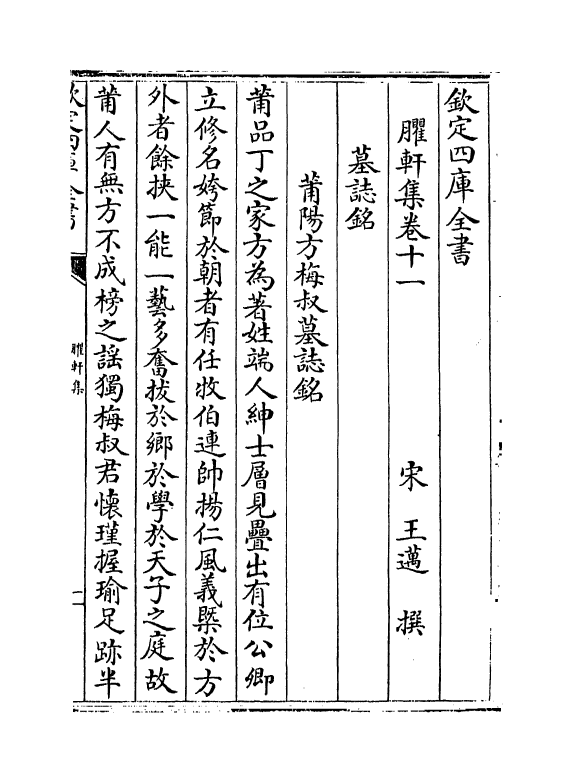 欽定四庫全書
臞軒集卷十一
宋 王邁 撰
墓誌銘
莆陽方梅叔墓誌銘
莆品丁之家方為著姓端人紳士層見疊出有位公卿
立修名姱節於朝者有任牧伯連帥揚仁風義槩於方
外者餘挾一能一藝多奮拔於鄉於學於天子之庭故
莆人有無方不成榜之謡獨梅叔君懷瑾握瑜足跡半
欽定四庫全書
臞軒集